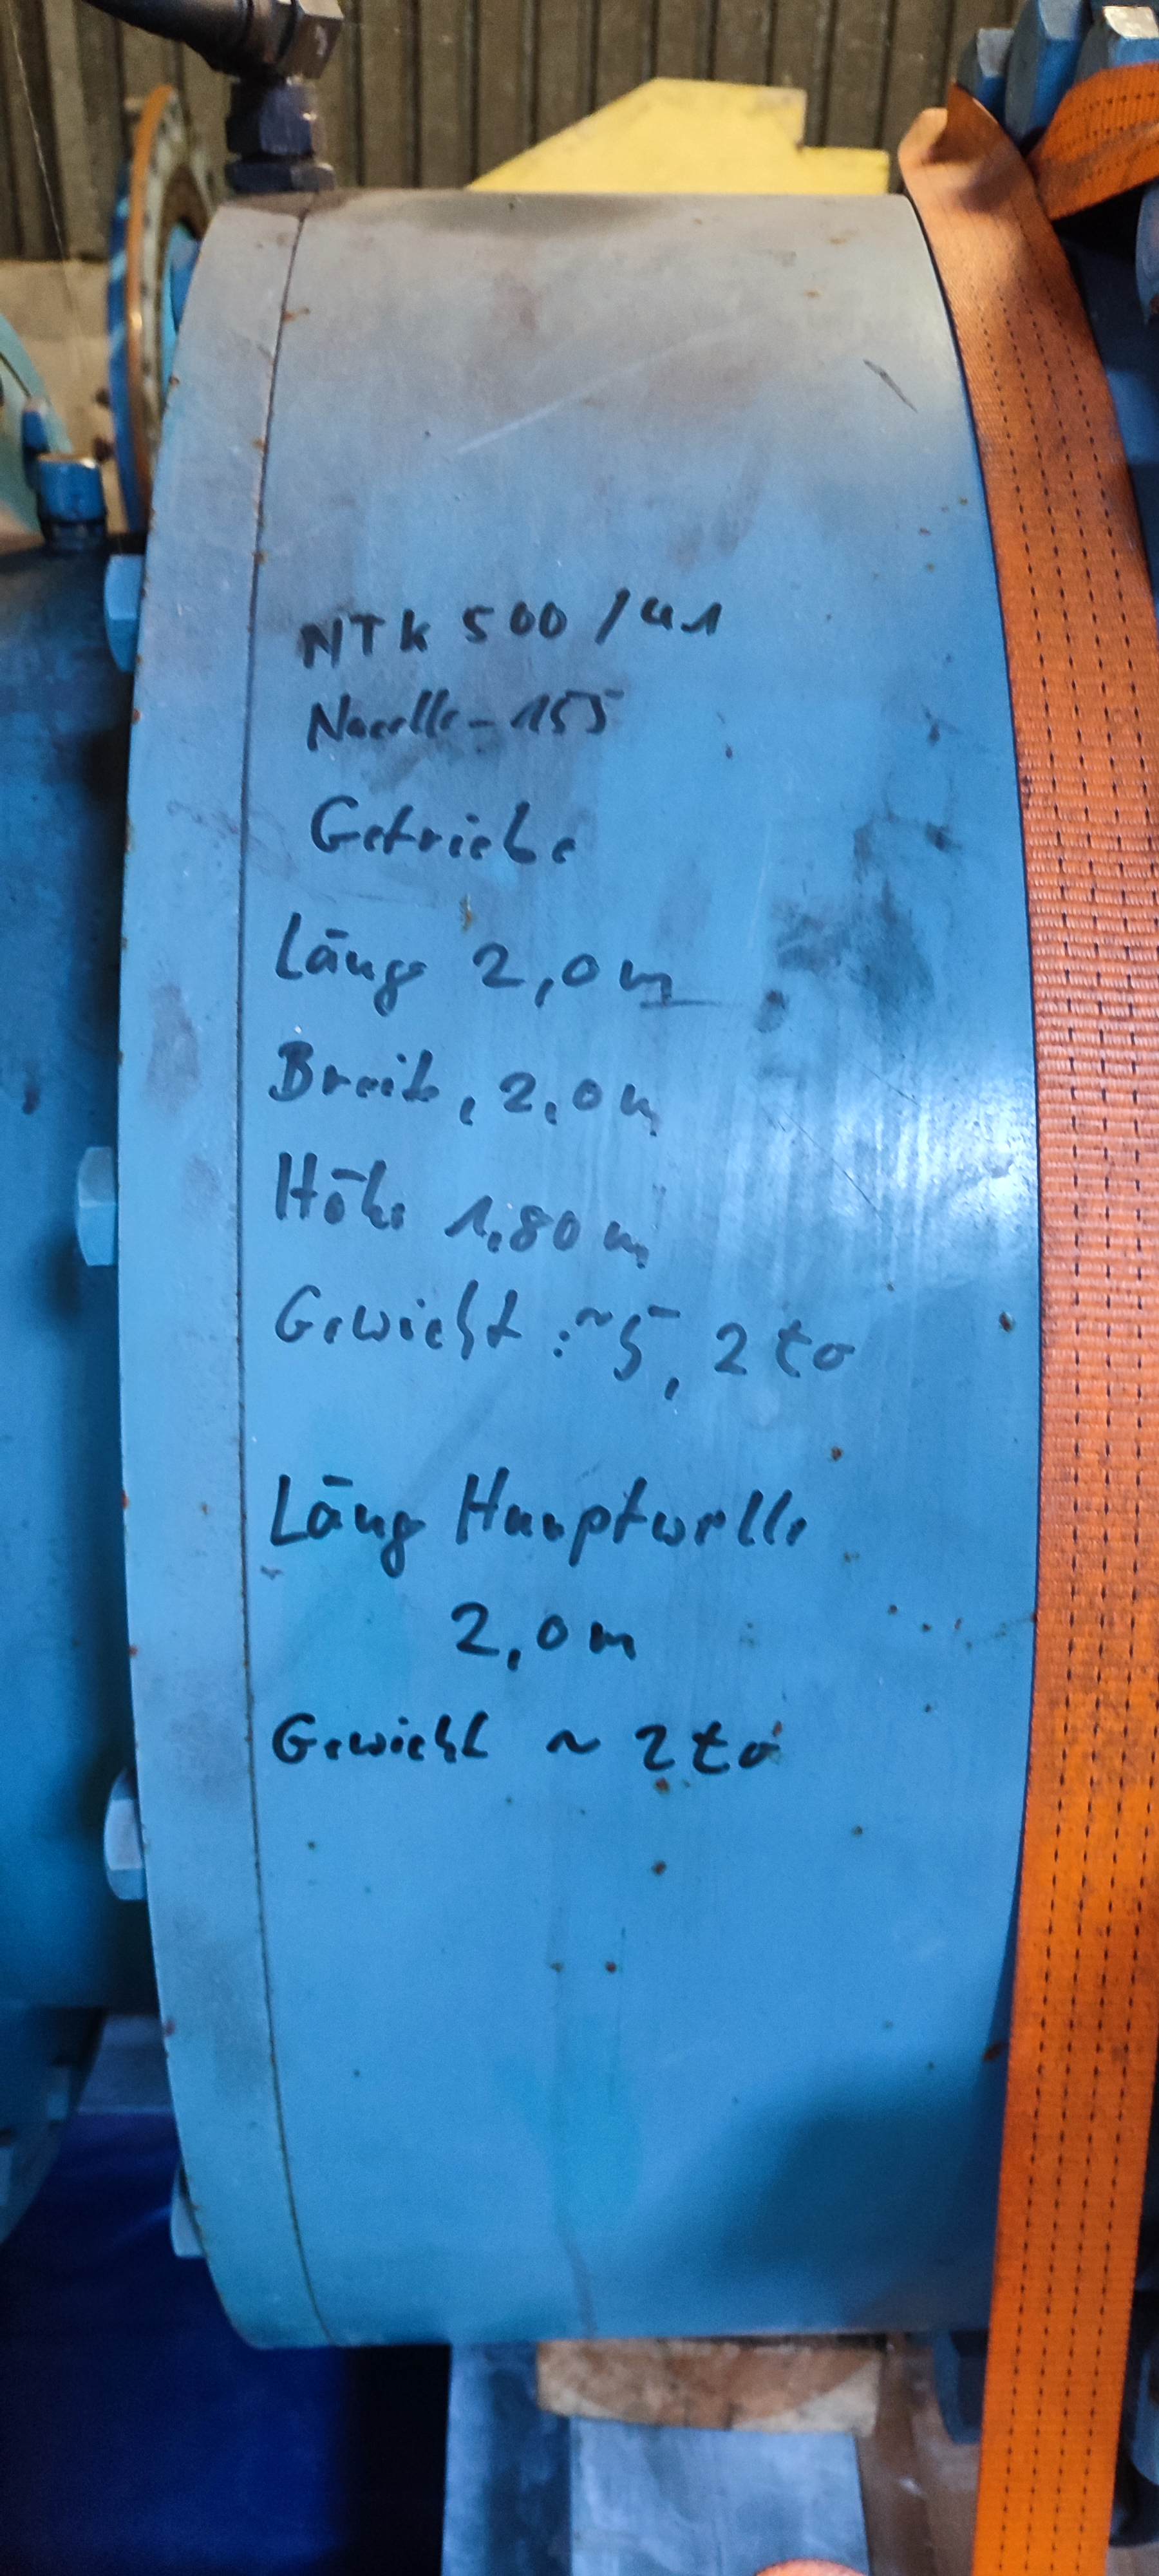 NTK 500 / 41
Nacelle - 155
Getriebe
Länge 2,0 m
Breite, 2,0 m
Höhe 1,80 m
Gewicht : ~ 5,2 to
Länge Hauptwelle
2,0 m
Gewicht ~ 2 to